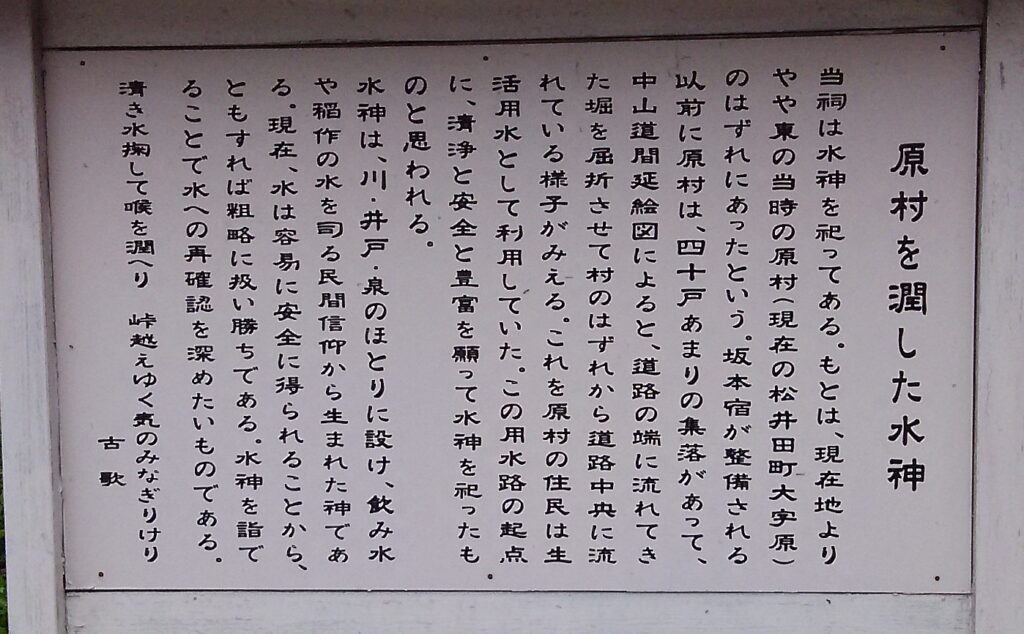 原村を潤した水神
当祠は水神を祀ってある。もとは、現在地より
やや東の当時の原村(現在の松井田町大字原)
のはずれにあったという。坂本宿が整備される
以前に原村は、四十戸あまりの集落があって、
中山道間延絵図によると、道路の端に流れてき
た堀を屈折させて村のはずれから道路中央に流
れている様子がみえる。これを原村の住民は生
活用水として利用していた。この用水路の起点
に、清浄と安全と豊富を願って水神を祀ったも
のと思われる。
水神は、川・井戸・泉のほとりに設け、飲み水
や稲作の水を司る民間信仰から生まれた神であ
る。現在、水は容易に安全に得られることから、
ともすれば粗略に扱い勝ちである。水神を詣で
ることで水への再確認を深めたいものである。
清き水掬して喉を潤へり 峠越えゆく気のみなぎりけり
古歌